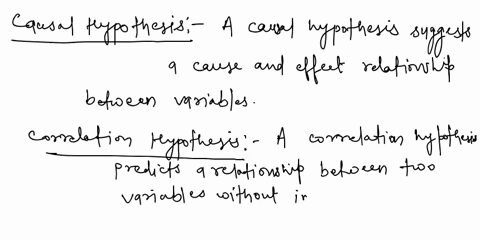 Causal Hypothesis:- A causal hypothesis suggests
a cause and effect relationship
between variables.
Correlation Hypothesis:- A correlation hypothesis
predicts a relationship between two
variables without